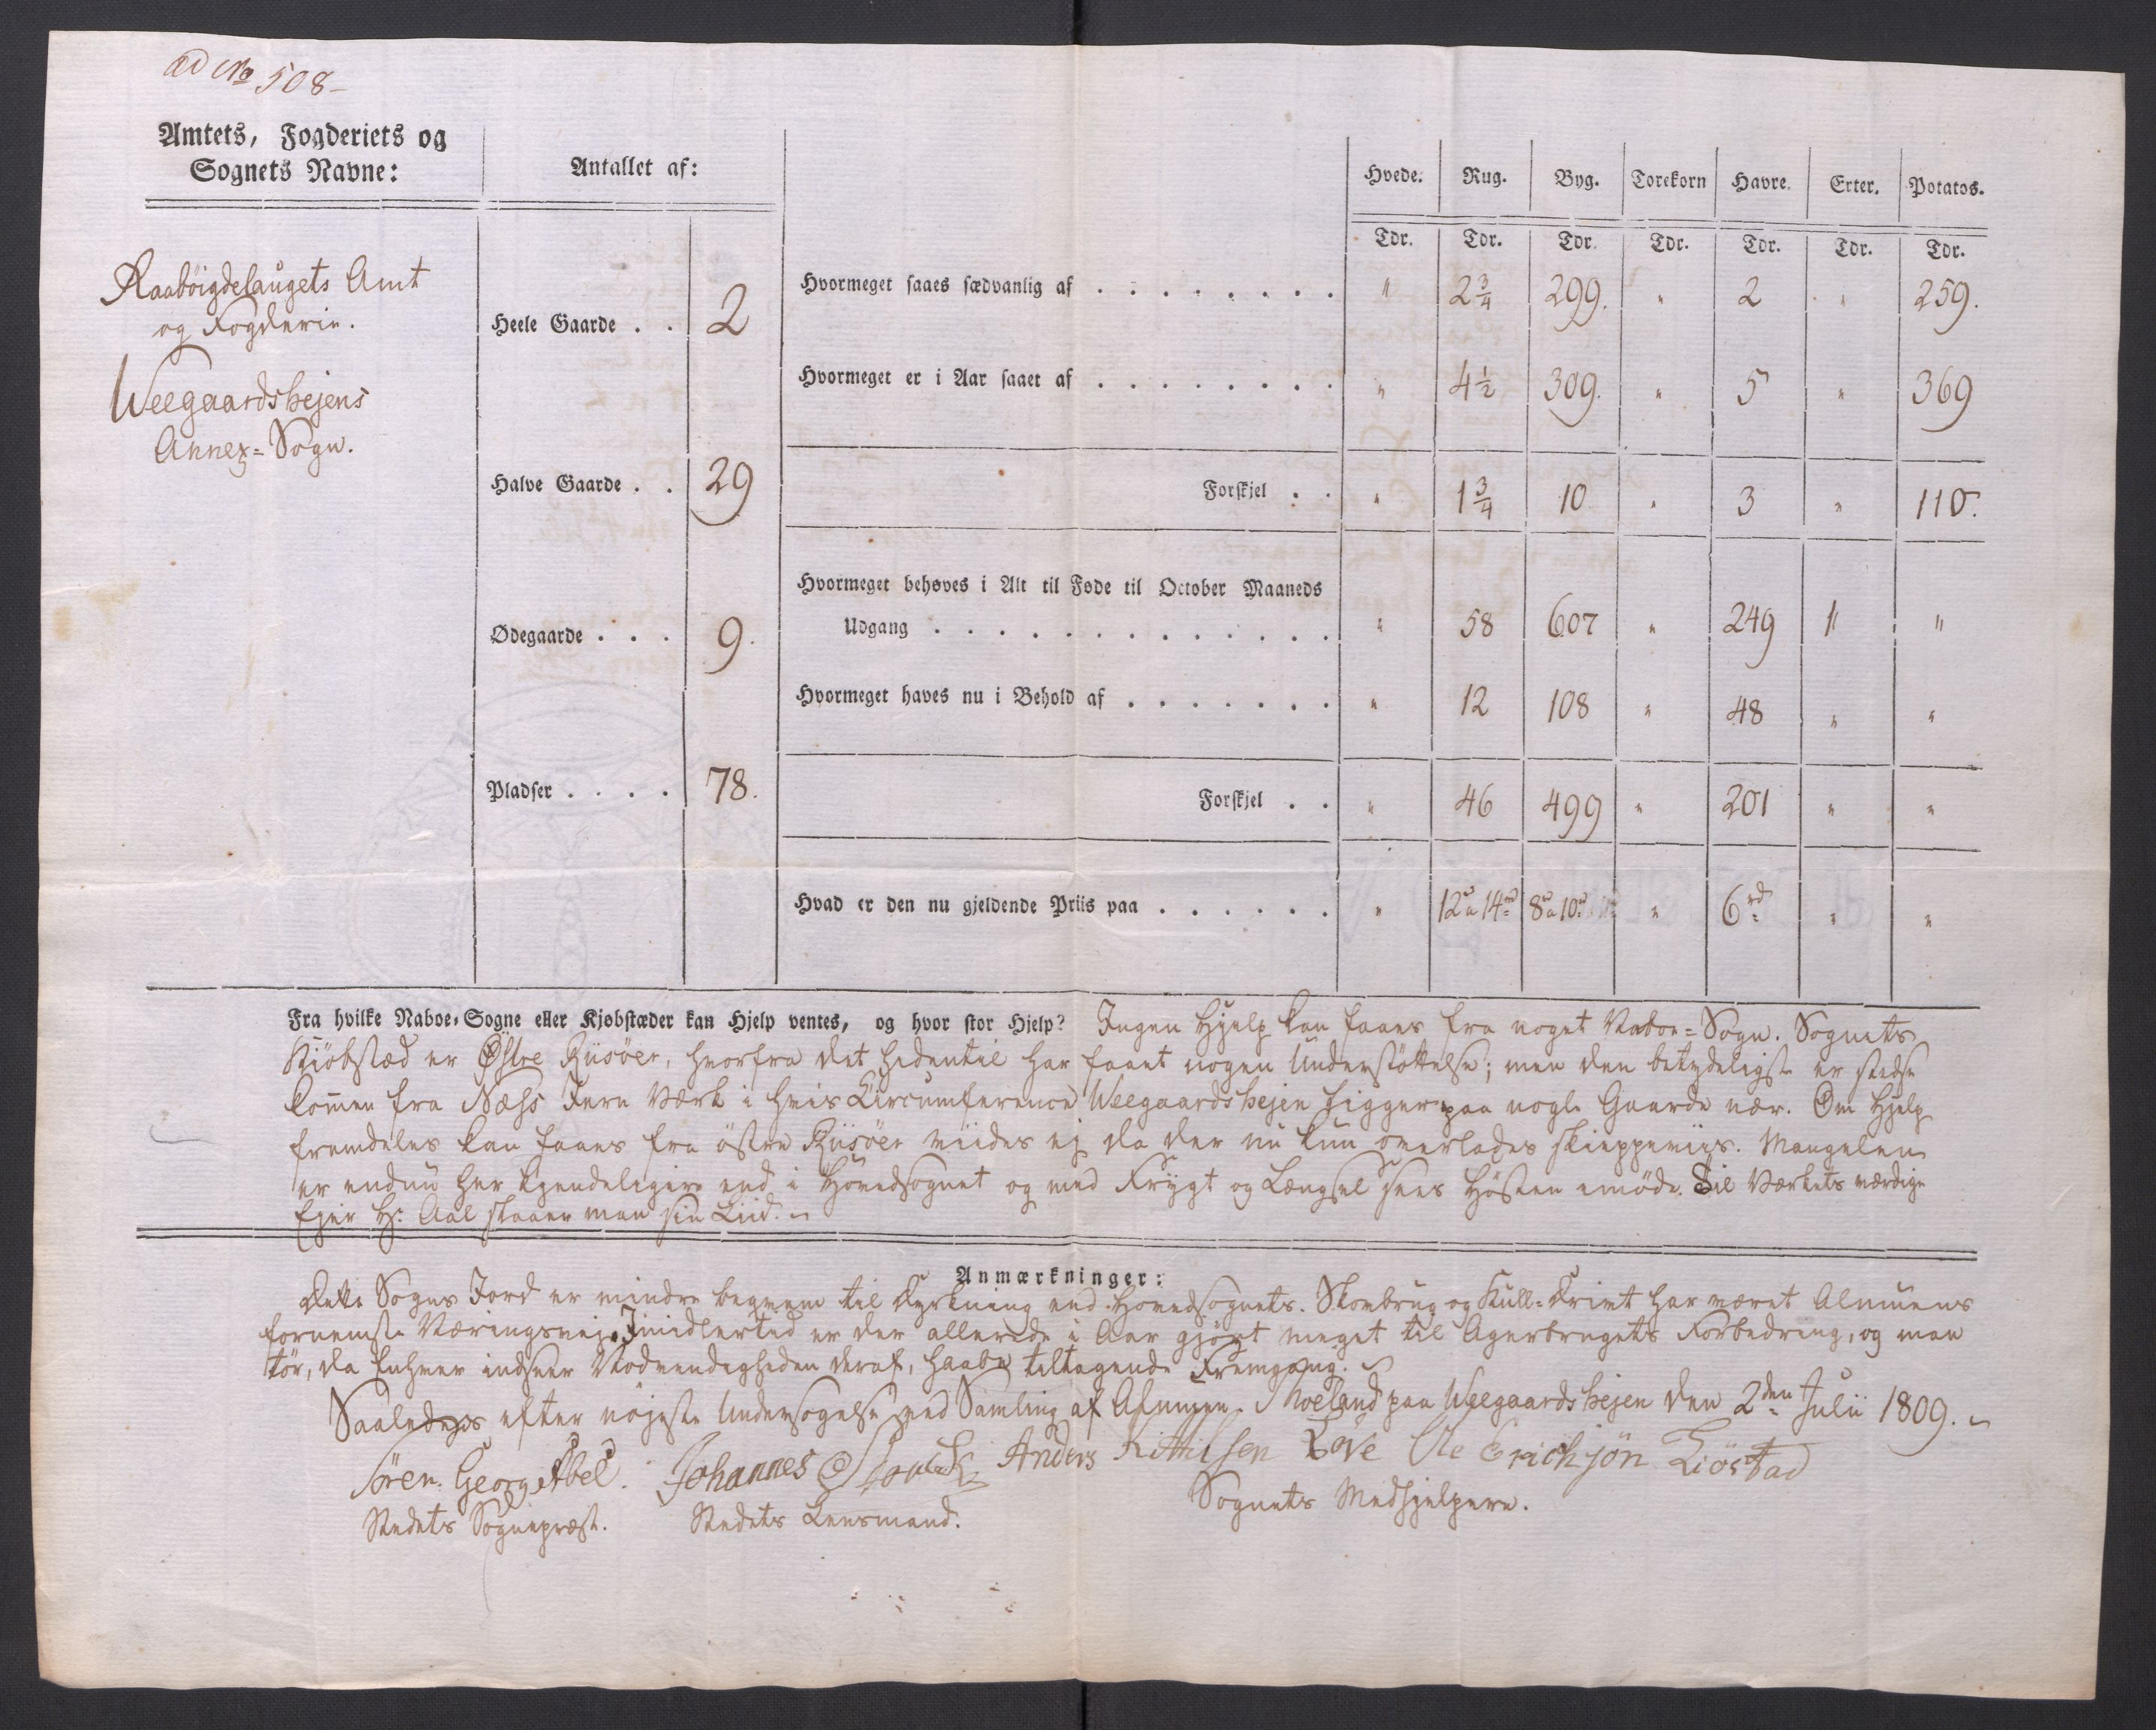 ad No 508-
Amtets, Fogderiets og
Sognets Navne:
Antallet af:
Hvede. Rug. Byg. Torekorn Havre. Erter. Potatos.
Tdr. Tdr. Tdr. Tdr. Tdr. Tdr. Tdr.
Raabøigdelaugets Amt
og Fogderie.
Weegaardshejens
Annex=Sogn.
Heele Gaarde . . 2
Halve Gaarde . . 29
Ødegaarde . . . 9.
Pladser . . . . 78.
Hvormeget saaes sædvanlig af . . . . . . . . " 2 3/4 299. " 2 " 259.
Hvormeget er i Aar saaet af . . . . . . . . " 4 1/2 309. " 5 " 369
Forskjel . . " 1 3/4 10 " 3 " 110.
Hvormeget behøves i Alt til Føde til October Maaneds
Udgang . . . . . . . . . . . . . " 58 607 " 249 " "
Hvormeget haves nu i Behold af . . . . . . . " 12 108 " 48 " "
Forskjel . . " 46 499 " 201 " "
Hvad er den nu gjeldende Priis paa . . . . . . " 12 a 14 rd 8 a 10 rd " 6 rd " "
Fra hvilke Naboe-Sogne eller Kjøbstæder kan Hjelp ventes, og hvor stor Hjelp? Ingen Hjelp kan faaes fra noget Naboe=Sogn. Sognets
Kiöbstæd er Østre Riisöer, hvorfra det hidentil har faaet nogen Understöttelse; men den betydeligste er stedse
kom̄en fra Næss Jern Værk i hvis Circumference Weegaardshejen ligger paa nogle Gaarde nær. Om Hjelp
fremdeles kan faaes fra östre Riisöer viides ej da der nu kun overlades skieppeviis. Mangelen
er endnu her kjendeligere end i Hovedsognet og med Frygt og Længsel sees Hösten imöde. Til Værkets værdige
Ejer Hr. Aal staaer man sin Liid.
Anmærkninger:
Dette Sogns Jord er mindre beqvem til Dyrkning end Hovedsognets. Skovbrug og Kull=Drivt har været Almuens
fornemste Næringsvej. Imidlertid er der allerede i Aar gjört meget til Agerbrugets Forbedring, og man
tör, da Enhver indseer Nödvendigheden deraf, haabe tiltagende Fremgang.
Saaledes efter nöjeste Undersögelse ved Samling af Almuen. Moeland paa Weegaardshejen den 2den Julii 1809.
Sören Georg Abel. Johannes Anders Kittilsen Löve Ole Erichsön Liöstad
Stedets Sognepræst. Stedets Lensmand. Sognets Medhjelpere.